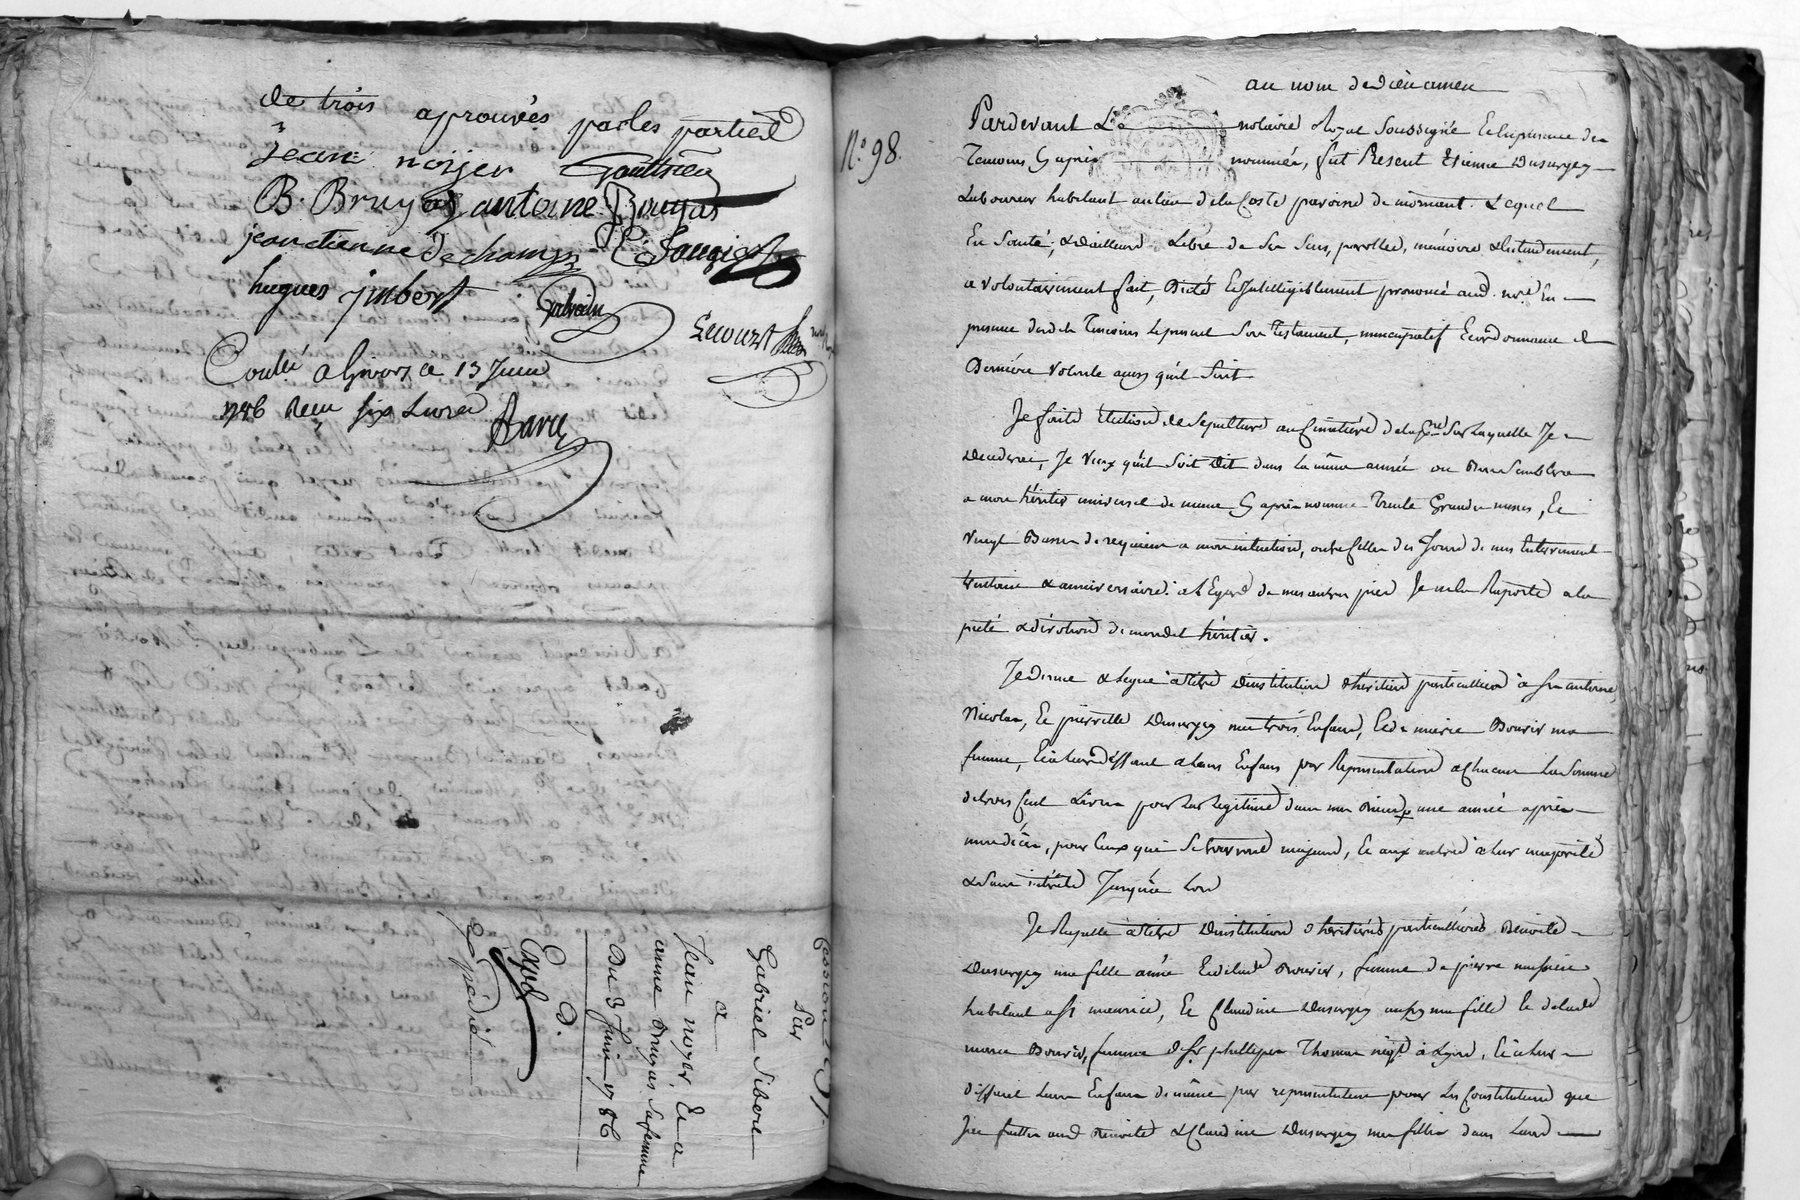 de trois aprouvés par les parties
Jean noyer Gaultier
B. Bruyas antoine Bruyas
jean etienne dechamps E. Faugier
hugues jmbert
Lecourt
Conlé a Givors ce 13 Juin
1786 Reçu six Livres
Cession
Par
Gabriel Sibert
a
Jean noyer, Et a
anne Bruyas sa femme
Du 3 Juin 1786
Exp.d
Expédié
N.o 98.
au nom de dieu amen
Pardevant Le notaire Royal soussigné Et En presence des
Temoins cy après nommés, fut Present Etienne Dusurgey
Laboureur habitant au lieu de la Coste paroisse de mornant. Lequel
En santé, & d'ailleurs Libre de ses sens, parolles, mémoire & Entendement,
a volontairement fait, Dicté Et Intelligiblement prononcé aud. nre En
presence desdits Temoins Le present son Testament, nuncupatif Et ordonnance de
Derniére volonté ainsy qu'il suit
Je faits Election de sepulture au Cimetiére de la psse sur laquelle Je
Decederai, Je veux qu'il soit Dit dans la même année ou Bon semblera
a mon héritier universel de meme cy après nommé Trente Grandes messes, Et
vingt Basses de requiem a mon intention, outre celles des Jours de mes Enterrement
trentaine & anniversaire. a l'Egard de mes autres prieres Je m'en Raporte a la
pieté & dévotion de mondit héritier.
Je donne & Legue à titre d'institution d'héritiers particulliers à Jean antoine,
Nicolas, Et pierrette Dusurgey mes trois Enfans, Et de marie Bourir ma
femme, Et à leur deffaut a leurs Enfans par Representation a Chacun La somme
de trois Cent Livres pour leur legitime dans mes Biens une année après
mon décès, pour Ceux qui se trouveront majeurs, Et aux autres à leur majorité
& sans intérêts Jusqu'à Lors
Je Rapelle à titre d'institution d'héritiéres particulliéres Benoite
Dusurgey ma fille ainée Et de lade Bourir, femme de pierre
habitant a St maurice, Et Claudine Dusurgey aussy ma fille Et de lade
marie Bourir, femme de Sr phillipes Thomas negt à Lyon, Et à leur
deffaut Leurs Enfans de même par representation pour Les Constitutions que
J'ai faittes aud. Benoite & Claudine Dusurgey mes filles dans Leurs